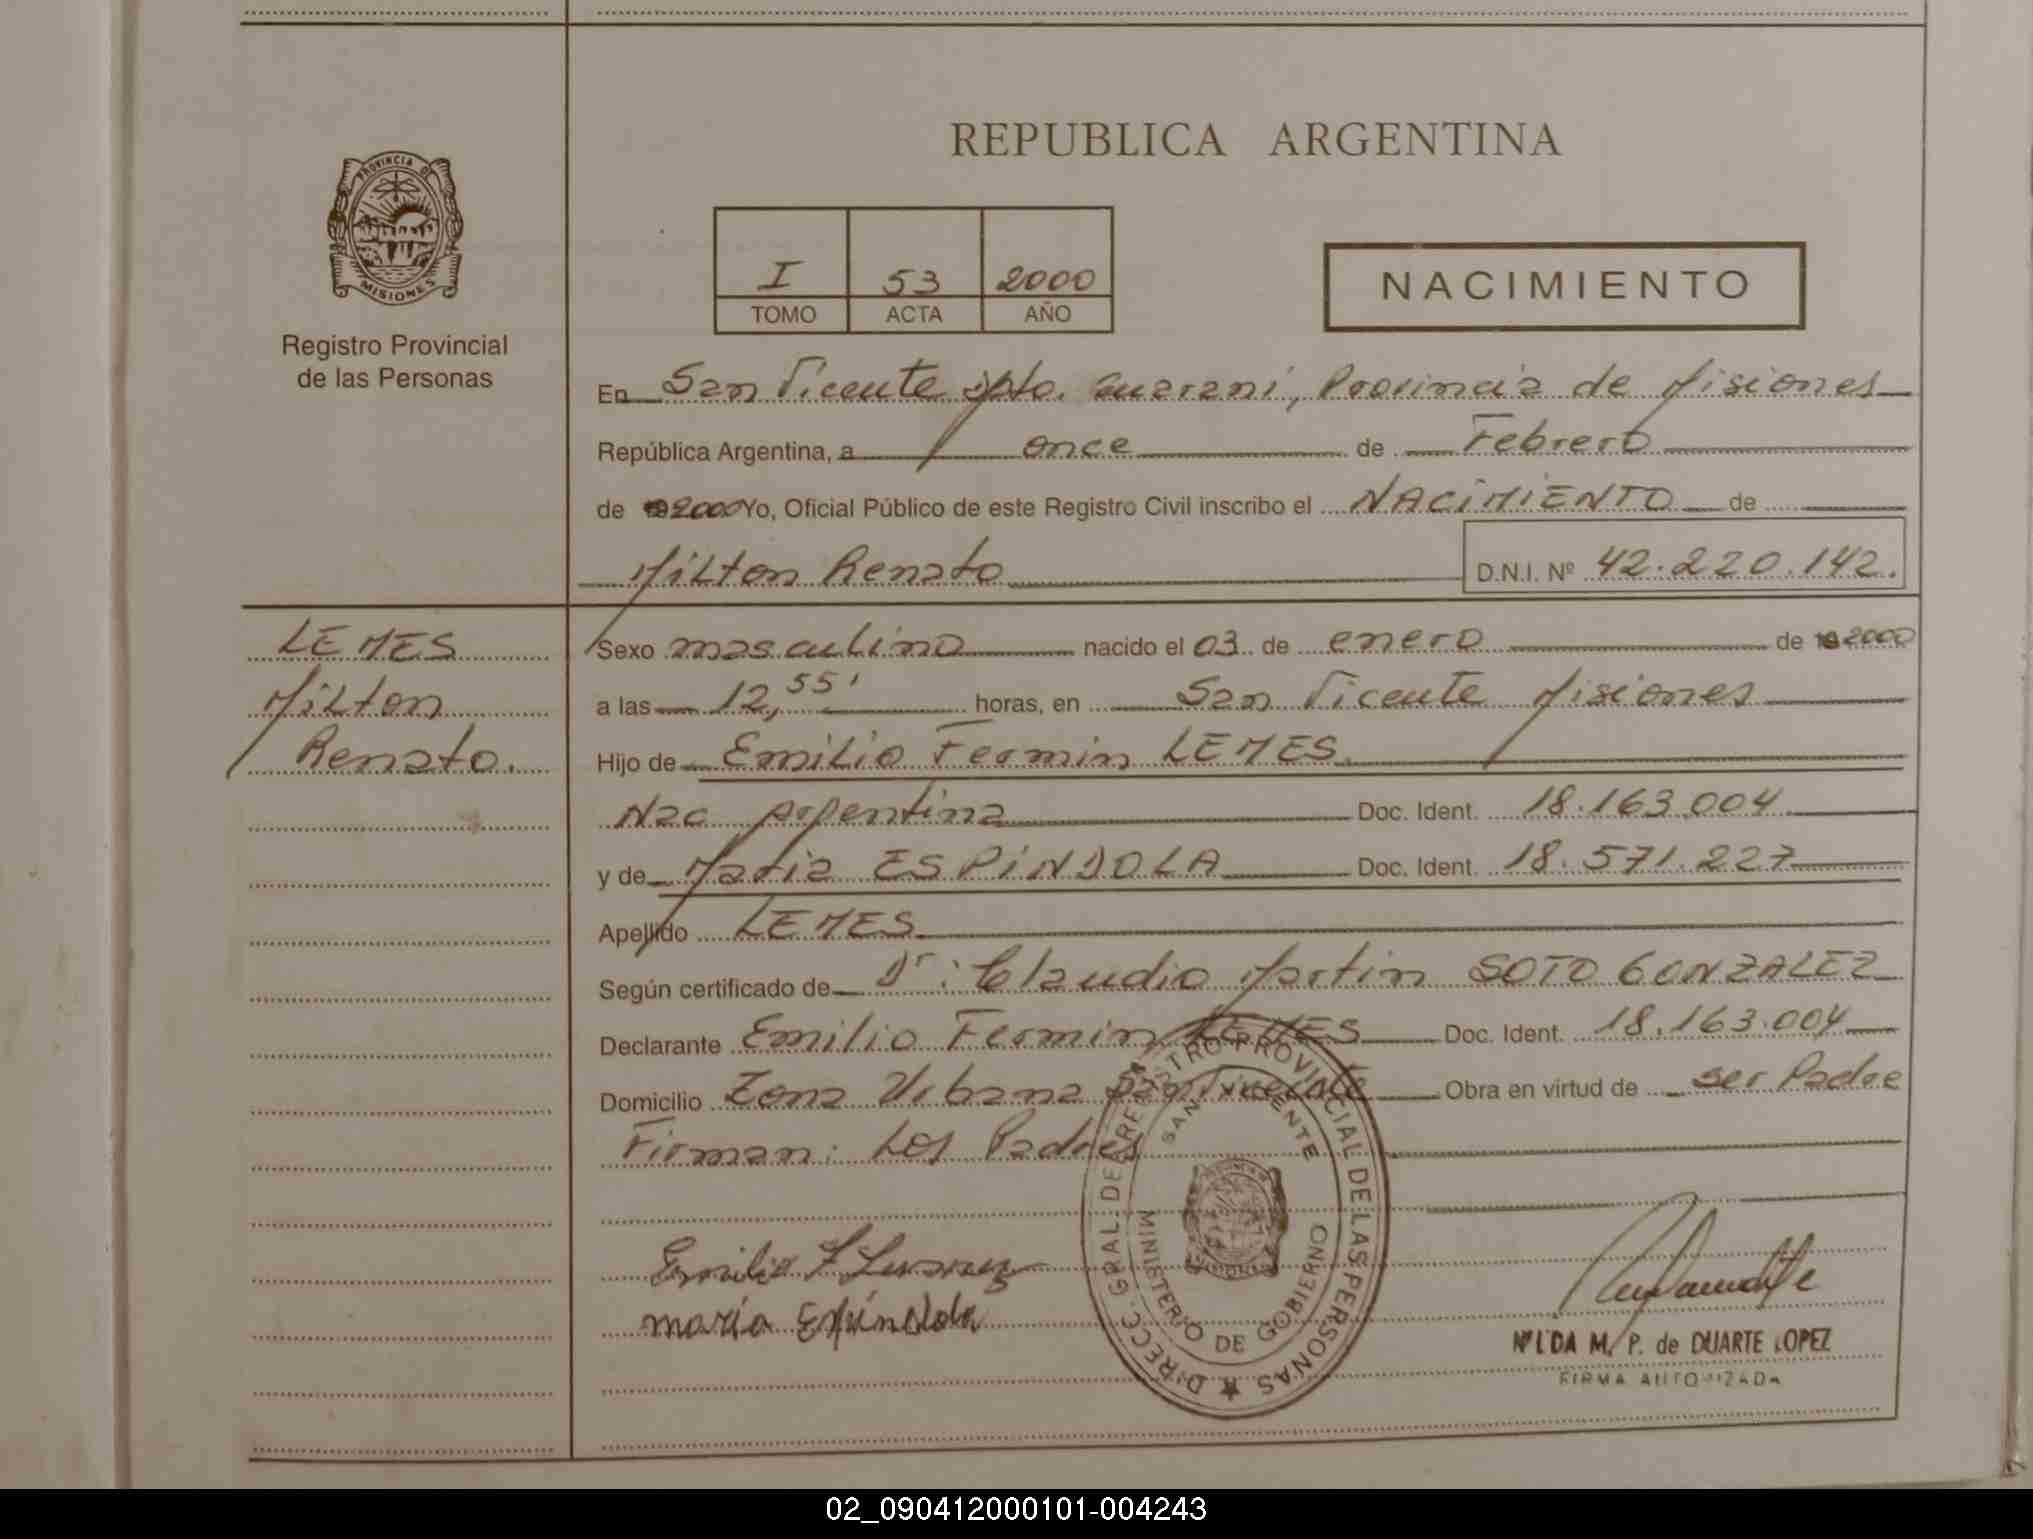 REPUBLICA ARGENTINA
PROVINCIA DE MISIONES
Registro Provincial
de las Personas
I 53 2000
TOMO ACTA AÑO
NACIMIENTO
En San Vicente Dpto. Guarani, Provincia de Misiones
República Argentina, a once de Febrero
de 2000 Yo, Oficial Público de este Registro Civil inscribo el NACIMIENTO de
Milton Renato D.N.I. Nº 42.220.142.
LEMES
Milton
Renato.
Sexo masculino nacido el 03 de enero de 2000
a las 12,55' horas, en San Vicente Misiones
Hijo de Emilio Fermin LEMES
Nac Argentina Doc. Ident. 18.163.004
y de Maria ESPINDOLA Doc. Ident. 18.571.227
Apellido LEMES
Según certificado de Dr: Claudio Martin SOTO GONZALEZ
Declarante Emilio Fermin LEMES Doc. Ident. 18.163.004
Domicilio Zona Urbana San Vicente Obra en virtud de ser Padre
Firman: Los Padres
DIRECC. GRAL. DEL REGISTRO PROVINCIAL DE LAS PERSONAS
SAN VICENTE
MINISTERIO DE GOBIERNO
maría Espíndola
NILDA M. P. de DUARTE LOPEZ
FIRMA AUTORIZADA
02_090412000101-004243